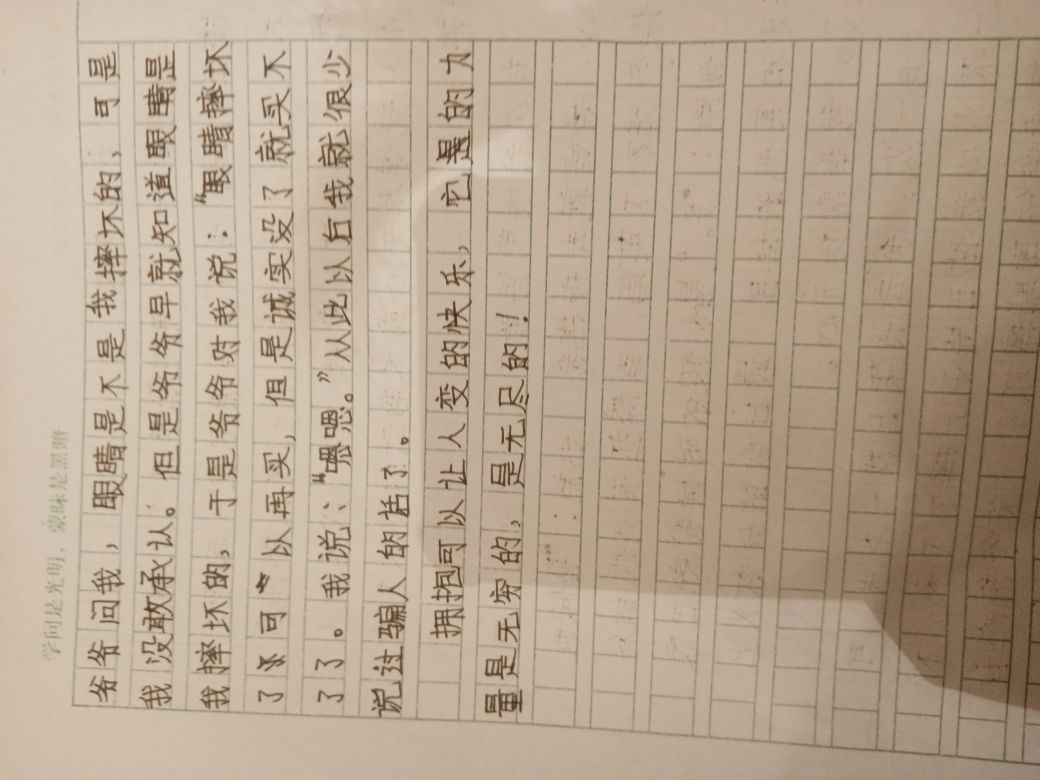 学问是光明，蒙昧是黑暗
爷爷问我，眼睛是不是我摔坏的、可是
我没敢承认。但是爷爷早就知道眼睛是
我摔坏的，于是爷爷对我说：“眼睛摔坏
了可以再买，但是诚实没了就买不
了了。我说：“嗯嗯。”从此以后我就很少
说过骗人的话了。
拥抱可以让人变的快乐，它是的力
量是无穷的，是无尽的！